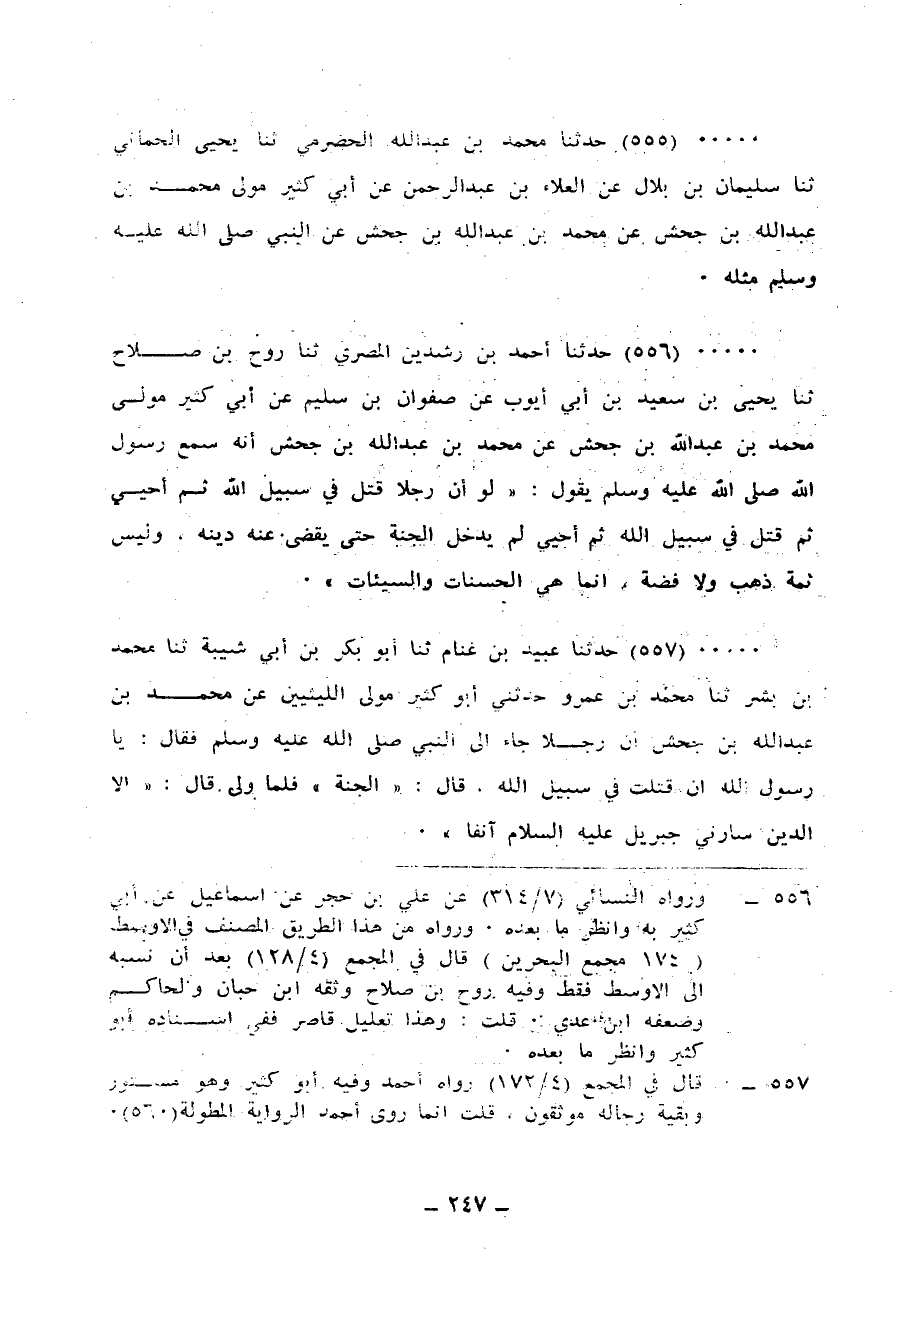 ٠٠٠٠٠ (٥٥٥) حدثنا محمد بن عبدالله الحضرمي ثنا يحيى الحماني
ثنا سليمان بن بلال عن العلاء بن عبدالرحمن عن أبي كثير مولى محمـــد بن
عبدالله بن جحش عن محمد بن عبدالله بن جحش عن النبي صلى الله عليـه
وسلم مثله ٠
٠٠٠٠٠ (٥٥٦) حدثنا أحمد بن رشدين المصري ثنا روح بن صـــلاح
ثنا يحيى بن سعيد بن أبي أيوب عن صفوان بن سليم عن أبي كثير مولـى
محمد بن عبدالله بن جحش عن محمد بن عبدالله بن جحش أنه سمع رسول
الله صلى الله عليه وسلم يقول : « لو أن رجلا قتل في سبيل الله ثـم أحيـي
ثم قتل في سبيل الله ثم أحيي لم يدخل الجنة حتى يقضى عنه دينه ، وليس
ثمة ذهب ولا فضة ، انما هي الحسنات والسيئات » ٠
٠٠٠٠٠ (٥٥٧) حدثنا عبيد بن غنام ثنا أبو بكر بن أبي شيبة ثنا محمد
بن بشر ثنا محمد بن عمرو حدثني أبو كثير مولى الليثيين عن محمـــد بن
عبدالله بن جحش أن رجـــلا جاء الى النبي صلى الله عليه وسلم فقال : يا
رسول الله ان قتلت في سبيل الله ، قال : « الجنة » فلما ولى قال : « الا
الدين سارني جبريل عليه السلام آنفا » ٠
٥٥٦ ــ ورواه النسائي (٣١٤/٧) عن علي بن حجر عن اسماعيل عن أبي
كثير به وانظر ما بعده ٠ ورواه من هذا الطريق المصنف في الاوسط
( ١٧٤ مجمع البحرين ) قال في المجمع (١٢٨/٤) بعد أن نسبه
الى الاوسط فقط وفيه روح بن صلاح وثقه ابن حبان والحاكـــم
وضعفه ابن عدي ٠ قلت : وهذا تعليل قاصر ففي اســـناده أبو
كثير وانظر ما بعده ٠
٥٥٧ ــ قال في المجمع (١٧٢/٤) رواه أحمد وفيه أبو كثير وهو مســـتور
وبقية رجاله موثقون ، قلت انما روى أحمد الرواية المطولة(٥٦٠)٠
ــ ٢٤٧ ــ